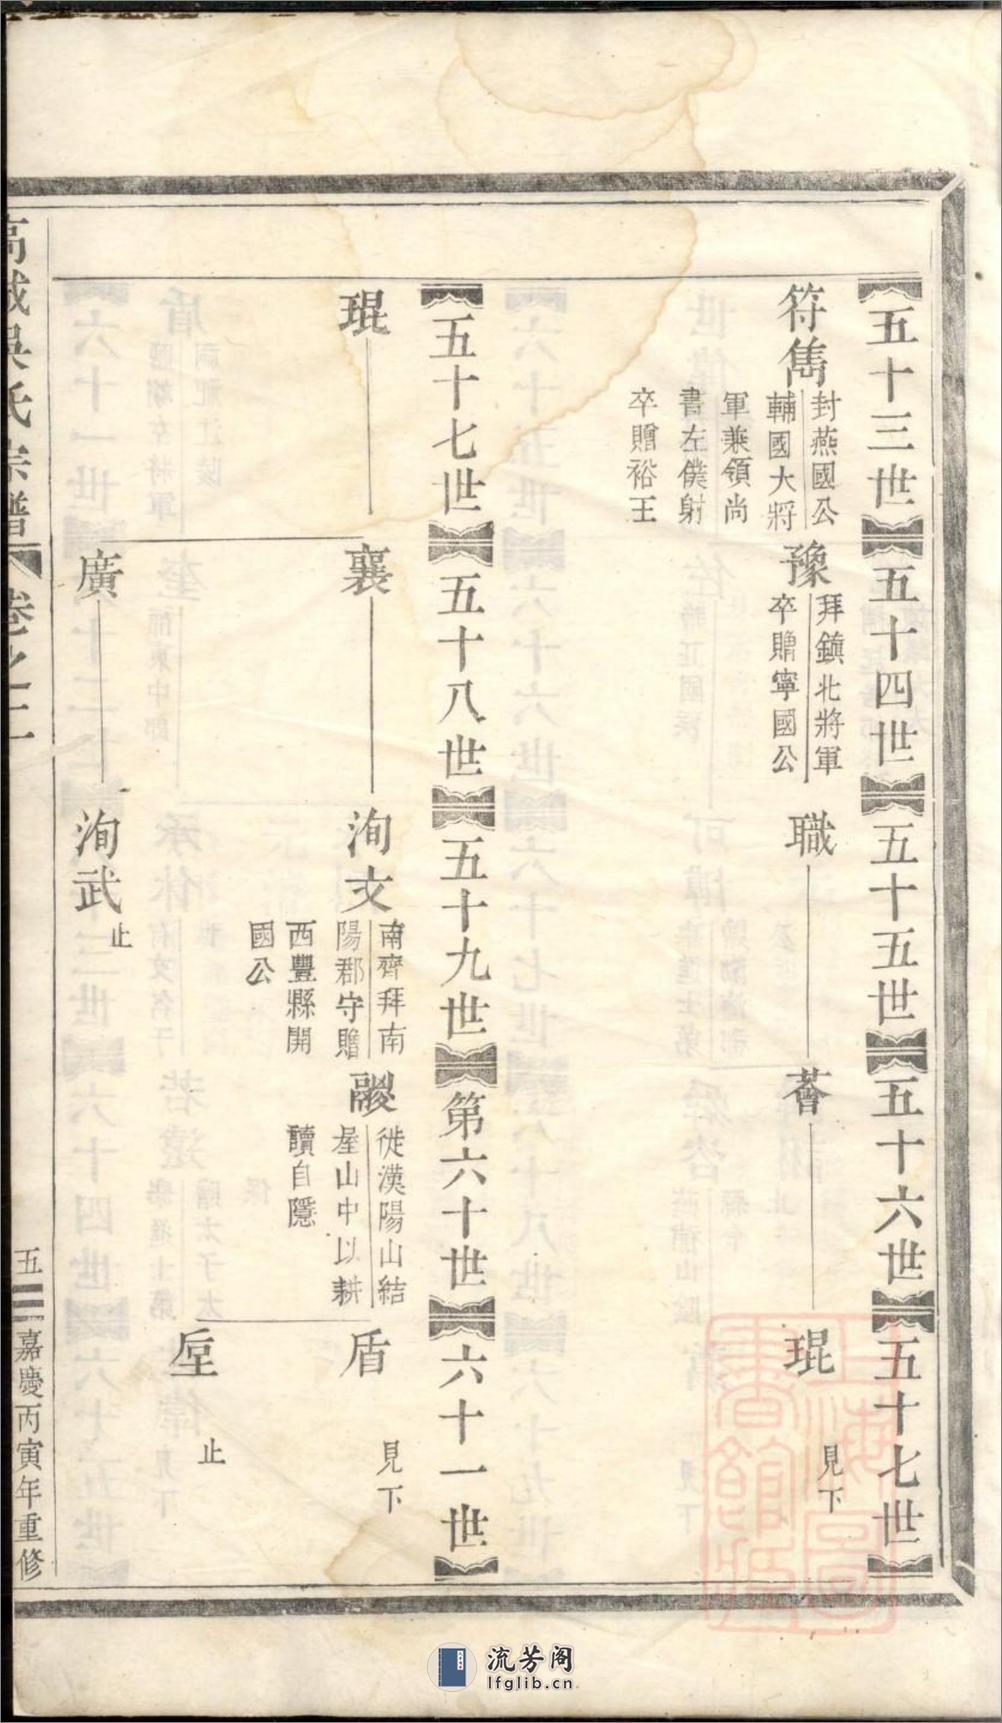 五十三世
五十四世
五十五世
五十六世
五十七世
符雋
封燕國公
輔國大將
軍兼領尚
書左僕射
卒贈裕王
豫
拜鎮北將軍
卒贈寧國公
職
薈
琨
見下
五十七世
五十八世
五十九世
第六十世
六十一世
琨
襄
洵文
南齊拜南
陽郡守贈
西豐縣開
國公
徙漢陽山結
屋山中以耕
讀自隱
盾
見下
垕
止
廣
洵武
止
吳氏宗譜
卷之二
五
嘉慶丙寅年重修
上海圖書館藏
流芳阁
lfglib.cn